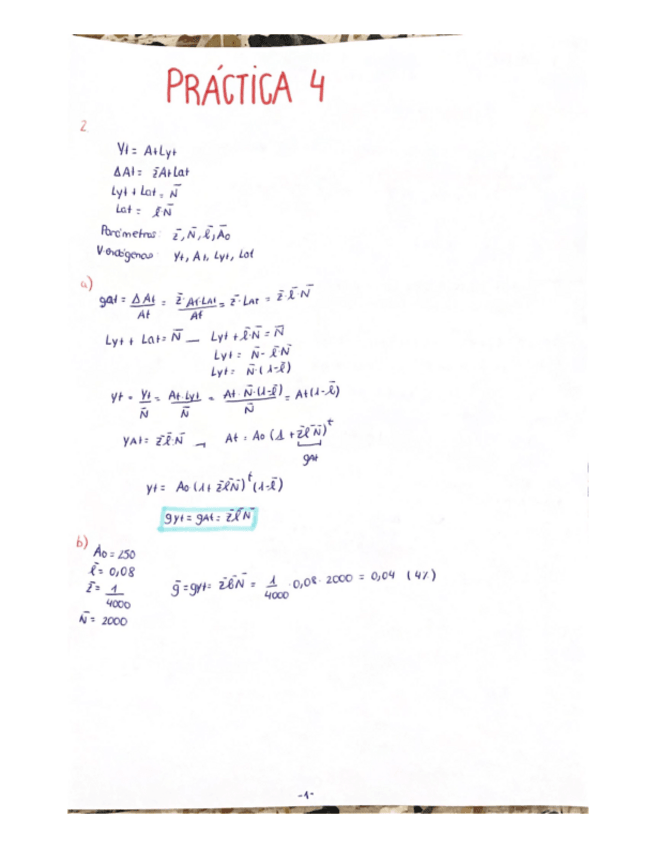 PRÁCTICA 4
2.
Yt = AtLyt
ΔAt = z̄AtLat
Lyt + Lat = N̄
Lat = l̄N̄
Parámetros: z̄, N̄, l̄, Āo
V. endógenas: Yt, At, Lyt, Lat
a)
gAt = ΔAt/At = z̄·At·LAt/At = z̄·LAt = z̄·l̄·N̄
Lyt + Lat = N̄ → Lyt + l̄·N̄ = N̄
Lyt = N̄ - l̄·N̄
Lyt = N̄·(1-l̄)
yt = Yt/N̄ = At·Lyt/N̄ = At·N̄·(1-l̄)/N̄ = At(1-l̄)
γAt = z̄·l̄·N̄ → At = Ao (1 + z̄l̄N̄)^t
gAt
yt = Ao (1+ z̄l̄N̄)^t (1-l̄)
gyt = gAt = z̄l̄N̄
b)
Āo = 250
l̄ = 0,08
z̄ = 1/4000
N̄ = 2000
ḡ = gyt = z̄l̄N̄ = 1/4000 · 0,08 · 2000 = 0,04 (4%)
-1-